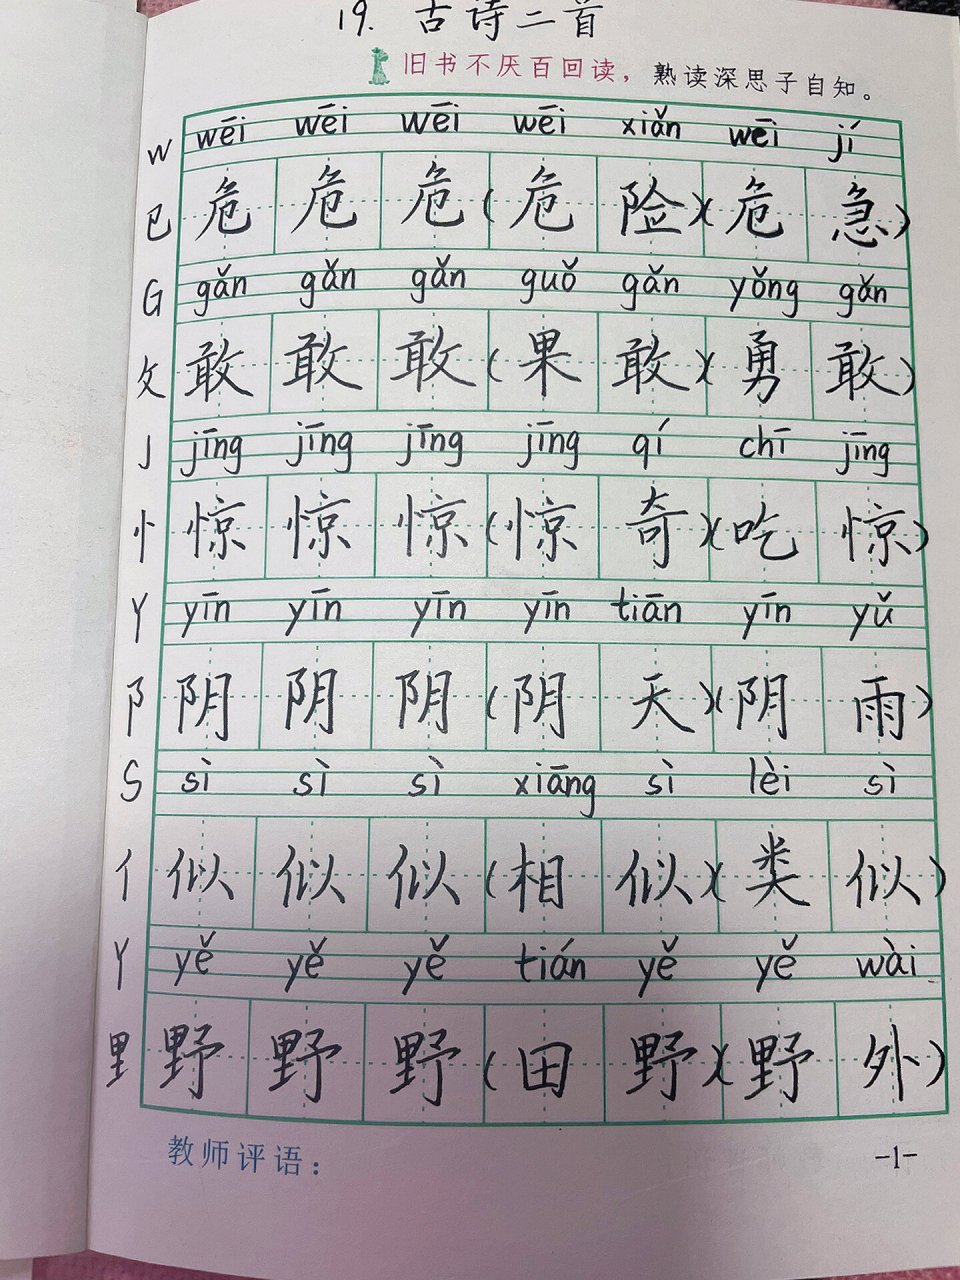 19. 古诗二首
旧书不厌百回读，熟读深思子自知。
W wēi wēi wēi wēi xiǎn wēi jí
㔾 危 危 危 (危 险)(危 急)
G gǎn gǎn gǎn guǒ gǎn yǒng gǎn
攵 敢 敢 敢 (果 敢)(勇 敢)
J jīng jīng jīng jīng qí chī jīng
忄 惊 惊 惊 (惊 奇)(吃 惊)
Y yīn yīn yīn yīn tiān yīn yǔ
阝 阴 阴 阴 (阴 天)(阴 雨)
S sì sì sì xiāng sì lèi sì
亻 似 似 似 (相 似)(类 似)
Y yě yě yě tián yě yě wài
里 野 野 野 (田 野)(野 外)
教师评语：
-1-